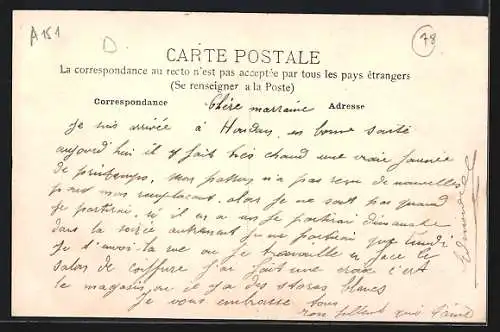 A 151
D
78
CARTE POSTALE
La correspondance au recto n'est pas acceptée par tous les pays étrangers
(Se renseigner à la Poste)
Correspondance Adresse
Chère marraine
Je suis arrivée à Houdan, en bonne santé
aujourd'hui il y fait très chaud une vraie journée
de printemps, mon patron n'a pas reçu de nouvelles
pour mon remplaçant, alors je ne sait pas quand
je partirai, si il en a un je partirai dimanche
dans la soirée autrement je ne partirai que lundi
Je t'envoi la vue ou je travaille en face le
salon de coiffure j'ai fait une croix c'est
le magasin ou il y a des stores blancs
Je vous embrasse tous
ton filleul qui t'aime